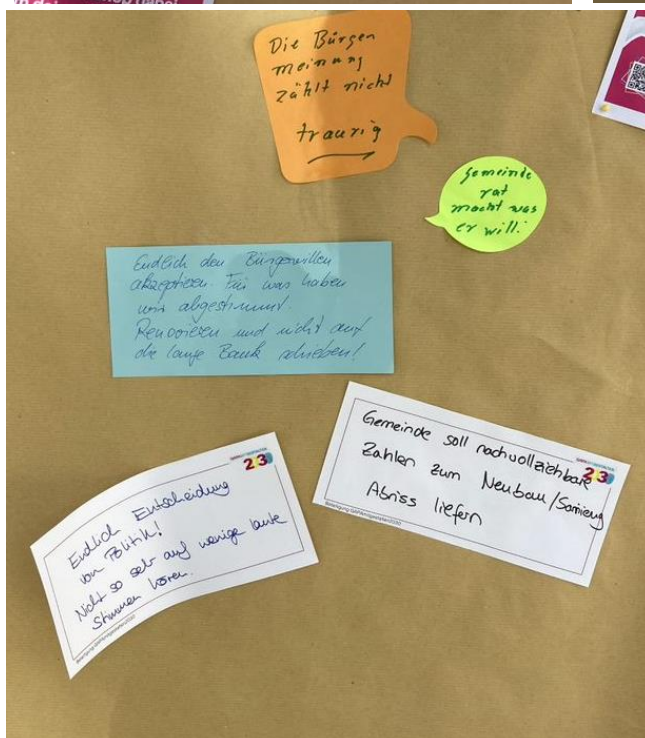 Die Bürgen
meinung
zählt nicht
traurig
Gemeinde
rat
macht was
er will!
Endlich den Bürgerwillen
akzeptieren. Für was haben
wir abgestimmt.
Renovieren und nicht auf
die lange Bank schieben!
Gemeinde soll nachvollziehbare
Zahlen zum Neubau/Sanierung
Abriss liefern
Endlich Entscheidung
von Politik!
Nicht so sehr auf wenige laute
Stimmen hören.